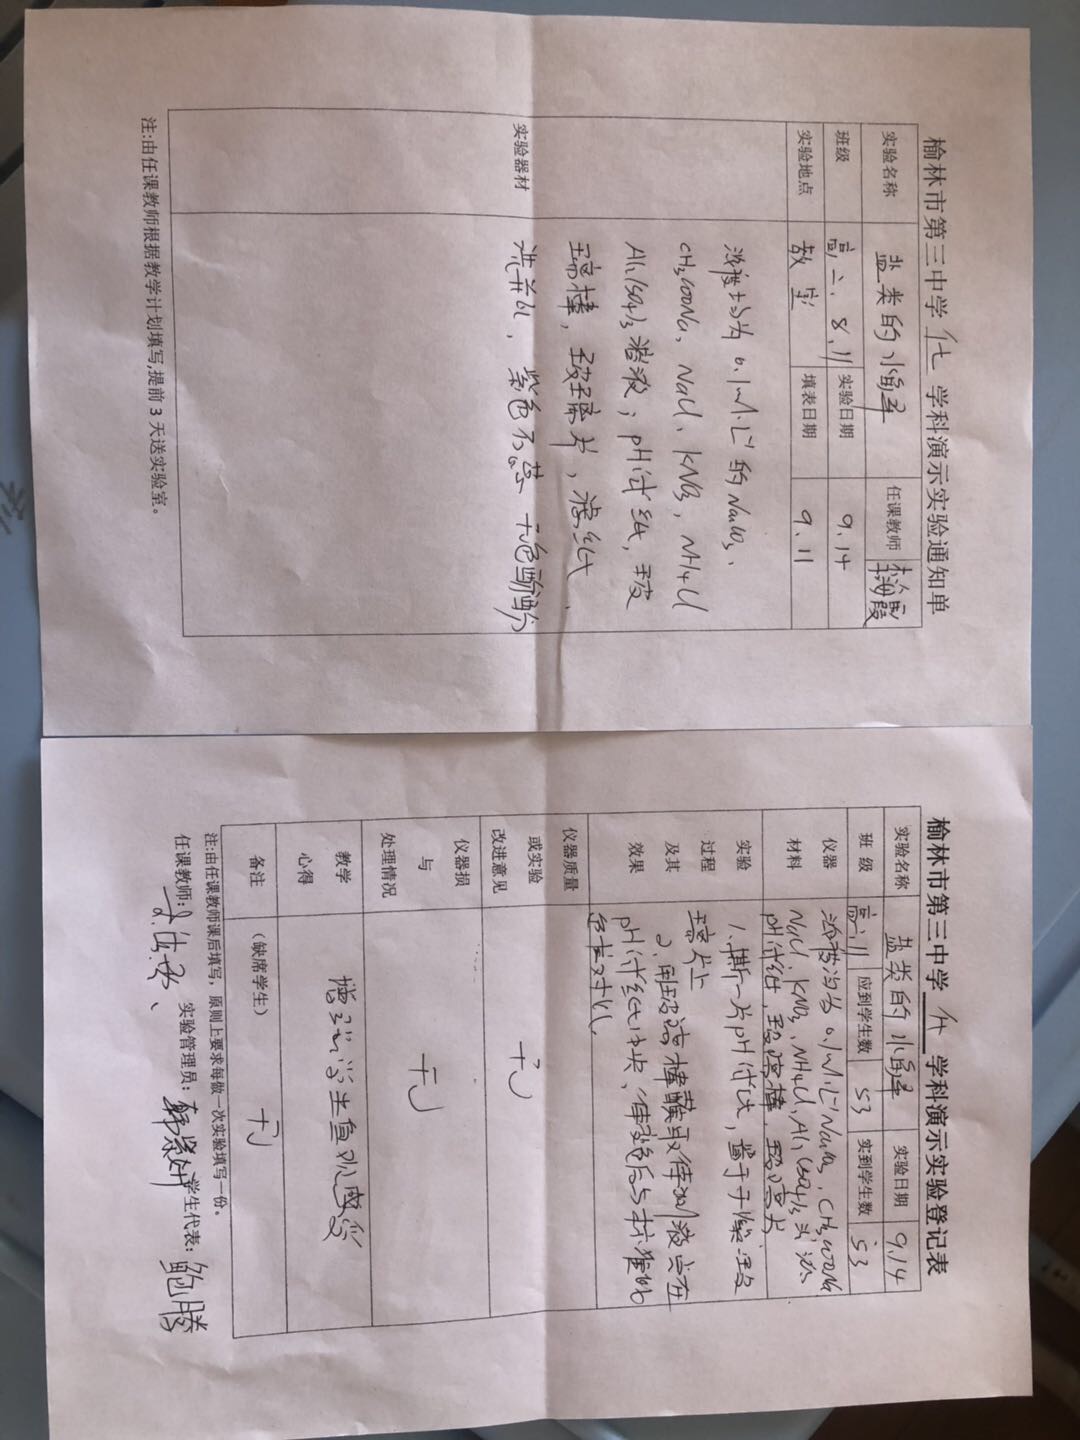 榆林市第三中学 化 学科演示实验通知单
实验名称 盐类的水解 任课教师
班级 高二、8、11 实验日期 9.14
实验地点 教室 填表日期 9.11
实验器材
浓度均为0.1mol·L⁻¹的Na₂CO₃、
CH₃COONa、NaCl、KNO₃、NH₄Cl
Al₂(SO₄)₃溶液；pH试纸，玻
璃棒，玻璃片，滤纸、
洗羊瓦、紫色石蕊 无色酚酞
注:由任课教师根据教学计划填写,提前 3 天送实验室。
榆林市第三中学 化 学科演示实验登记表
实验名称 盐类的水解 实验日期 9.14
班 级 高二11 应到学生数 53 实到学生数 53
仪器材料 浓度均为0.1mol·L⁻¹Na₂CO₃、CH₃COONa
NaCl、KNO₃、NH₄Cl、Al₂(SO₄)₃溶液
pH试纸，玻璃棒，玻璃片
实验过程及其效果 1.撕一片pH试纸，置于干燥玻
璃片上
2.用玻璃棒蘸取待测液点在
pH试纸中央、待变色后与标准比
色卡对比.
仪器质量或实验改进意见 无
仪器损与处理情况 无
教学心得 增强学生直观感受
备注 (缺席学生) 无
注:由任课教师课后填写，原则上要求每做一次实验填写一份。
任课教师: 实验管理员: 学生代表: 鲍腾